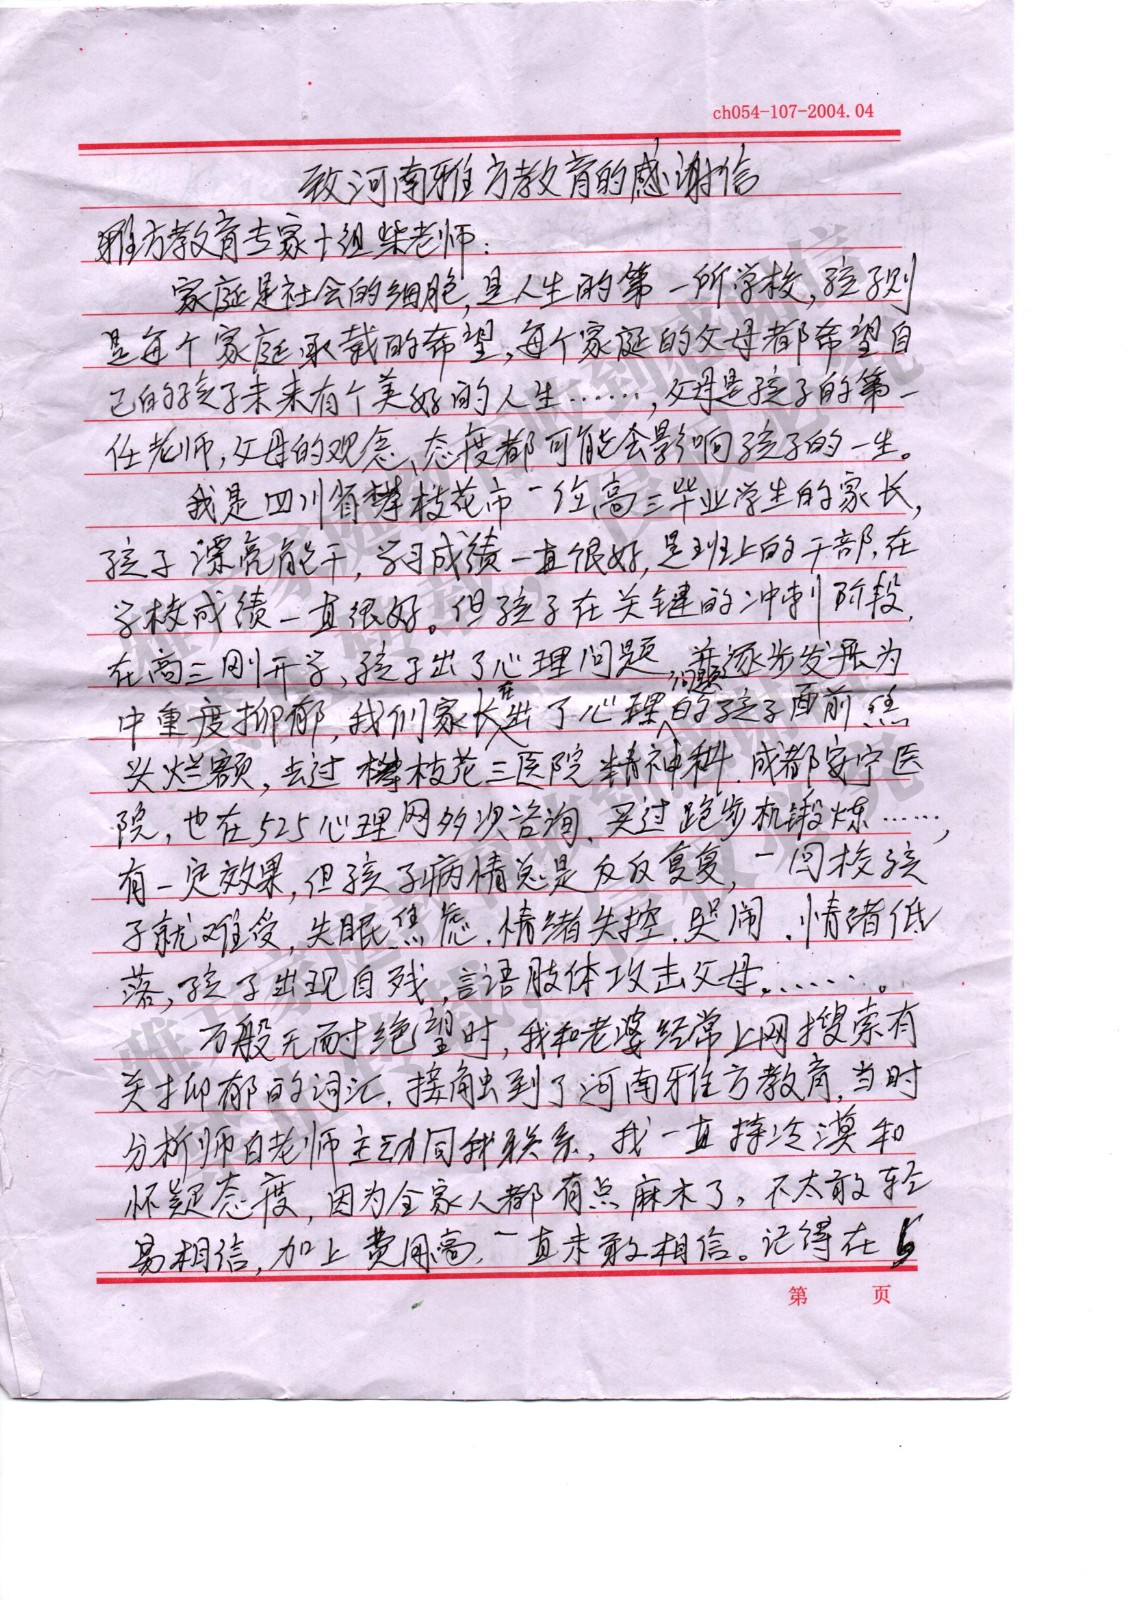 ch054-107-2004.04
致河南雅方教育的感谢信
雅方教育专家十组柴老师:
家庭是社会的细胞,是人生的第一所学校,孩子则
是每个家庭承载的希望,每个家庭的父母都希望自
己的孩子未来有个美好的人生……,父母是孩子的第一
任老师,父母的观念、态度都可能会影响孩子的一生。
我是四川省攀枝花市一位高三毕业学生的家长,
孩子漂亮能干,学习成绩一直很好,是班上的干部,在
学校成绩一直很好。但孩子在关键的冲刺阶段,
在高三刚开学,孩子出了心理问题,并逐步发展为
中重度抑郁,我们家长在出了心理问题的孩子面前焦
头烂额,去过攀枝花三医院精神科、成都安宁医
院,也在525心理网多次咨询、买过跑步机锻炼……,
有一定效果,但孩子病情总是反反复复,一回校孩
子就难受,失眠、焦虑、情绪失控、哭闹、情绪低
落,孩子出现自残,言语肢体攻击父母……。
万般无耐绝望时,我和老婆经常上网搜索有
关抑郁的词汇,接触到了河南雅方教育,当时
分析师白老师主动同我联系,我一直持冷漠和
怀疑态度,因为全家人都有点麻木了,不太敢轻
易相信,加上费用高,一直未敢相信。记得在
第 页